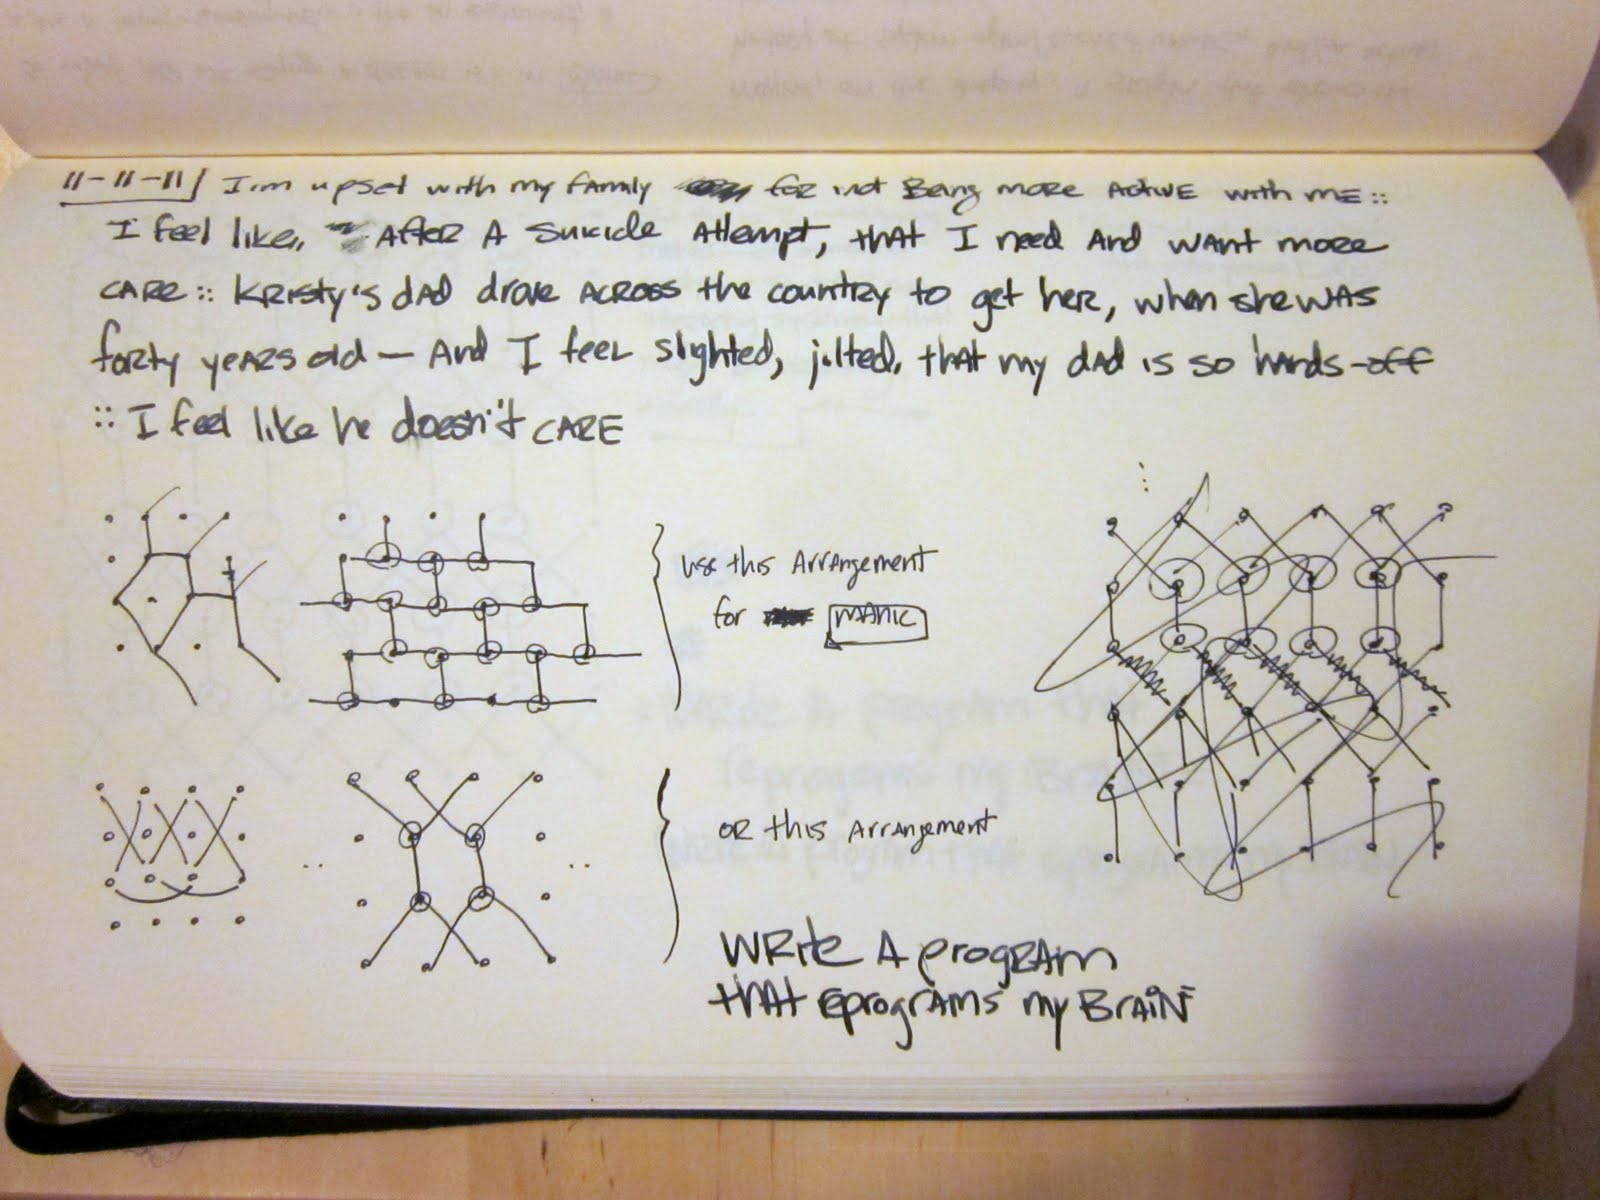 11-11-11/ I'm upset with my family for not Being more Active with me ::
I feel like, After A Suicide Attempt, that I need And want more
care :: Kristy's dad drove across the country to get her, when she was
forty years old — And I feel slighted, jilted, that my dad is so hands-off
:: I feel like he doesn't CARE
use this Arrangement
for MANIC
OR this Arrangement
Write A program
that reprograms my Brain